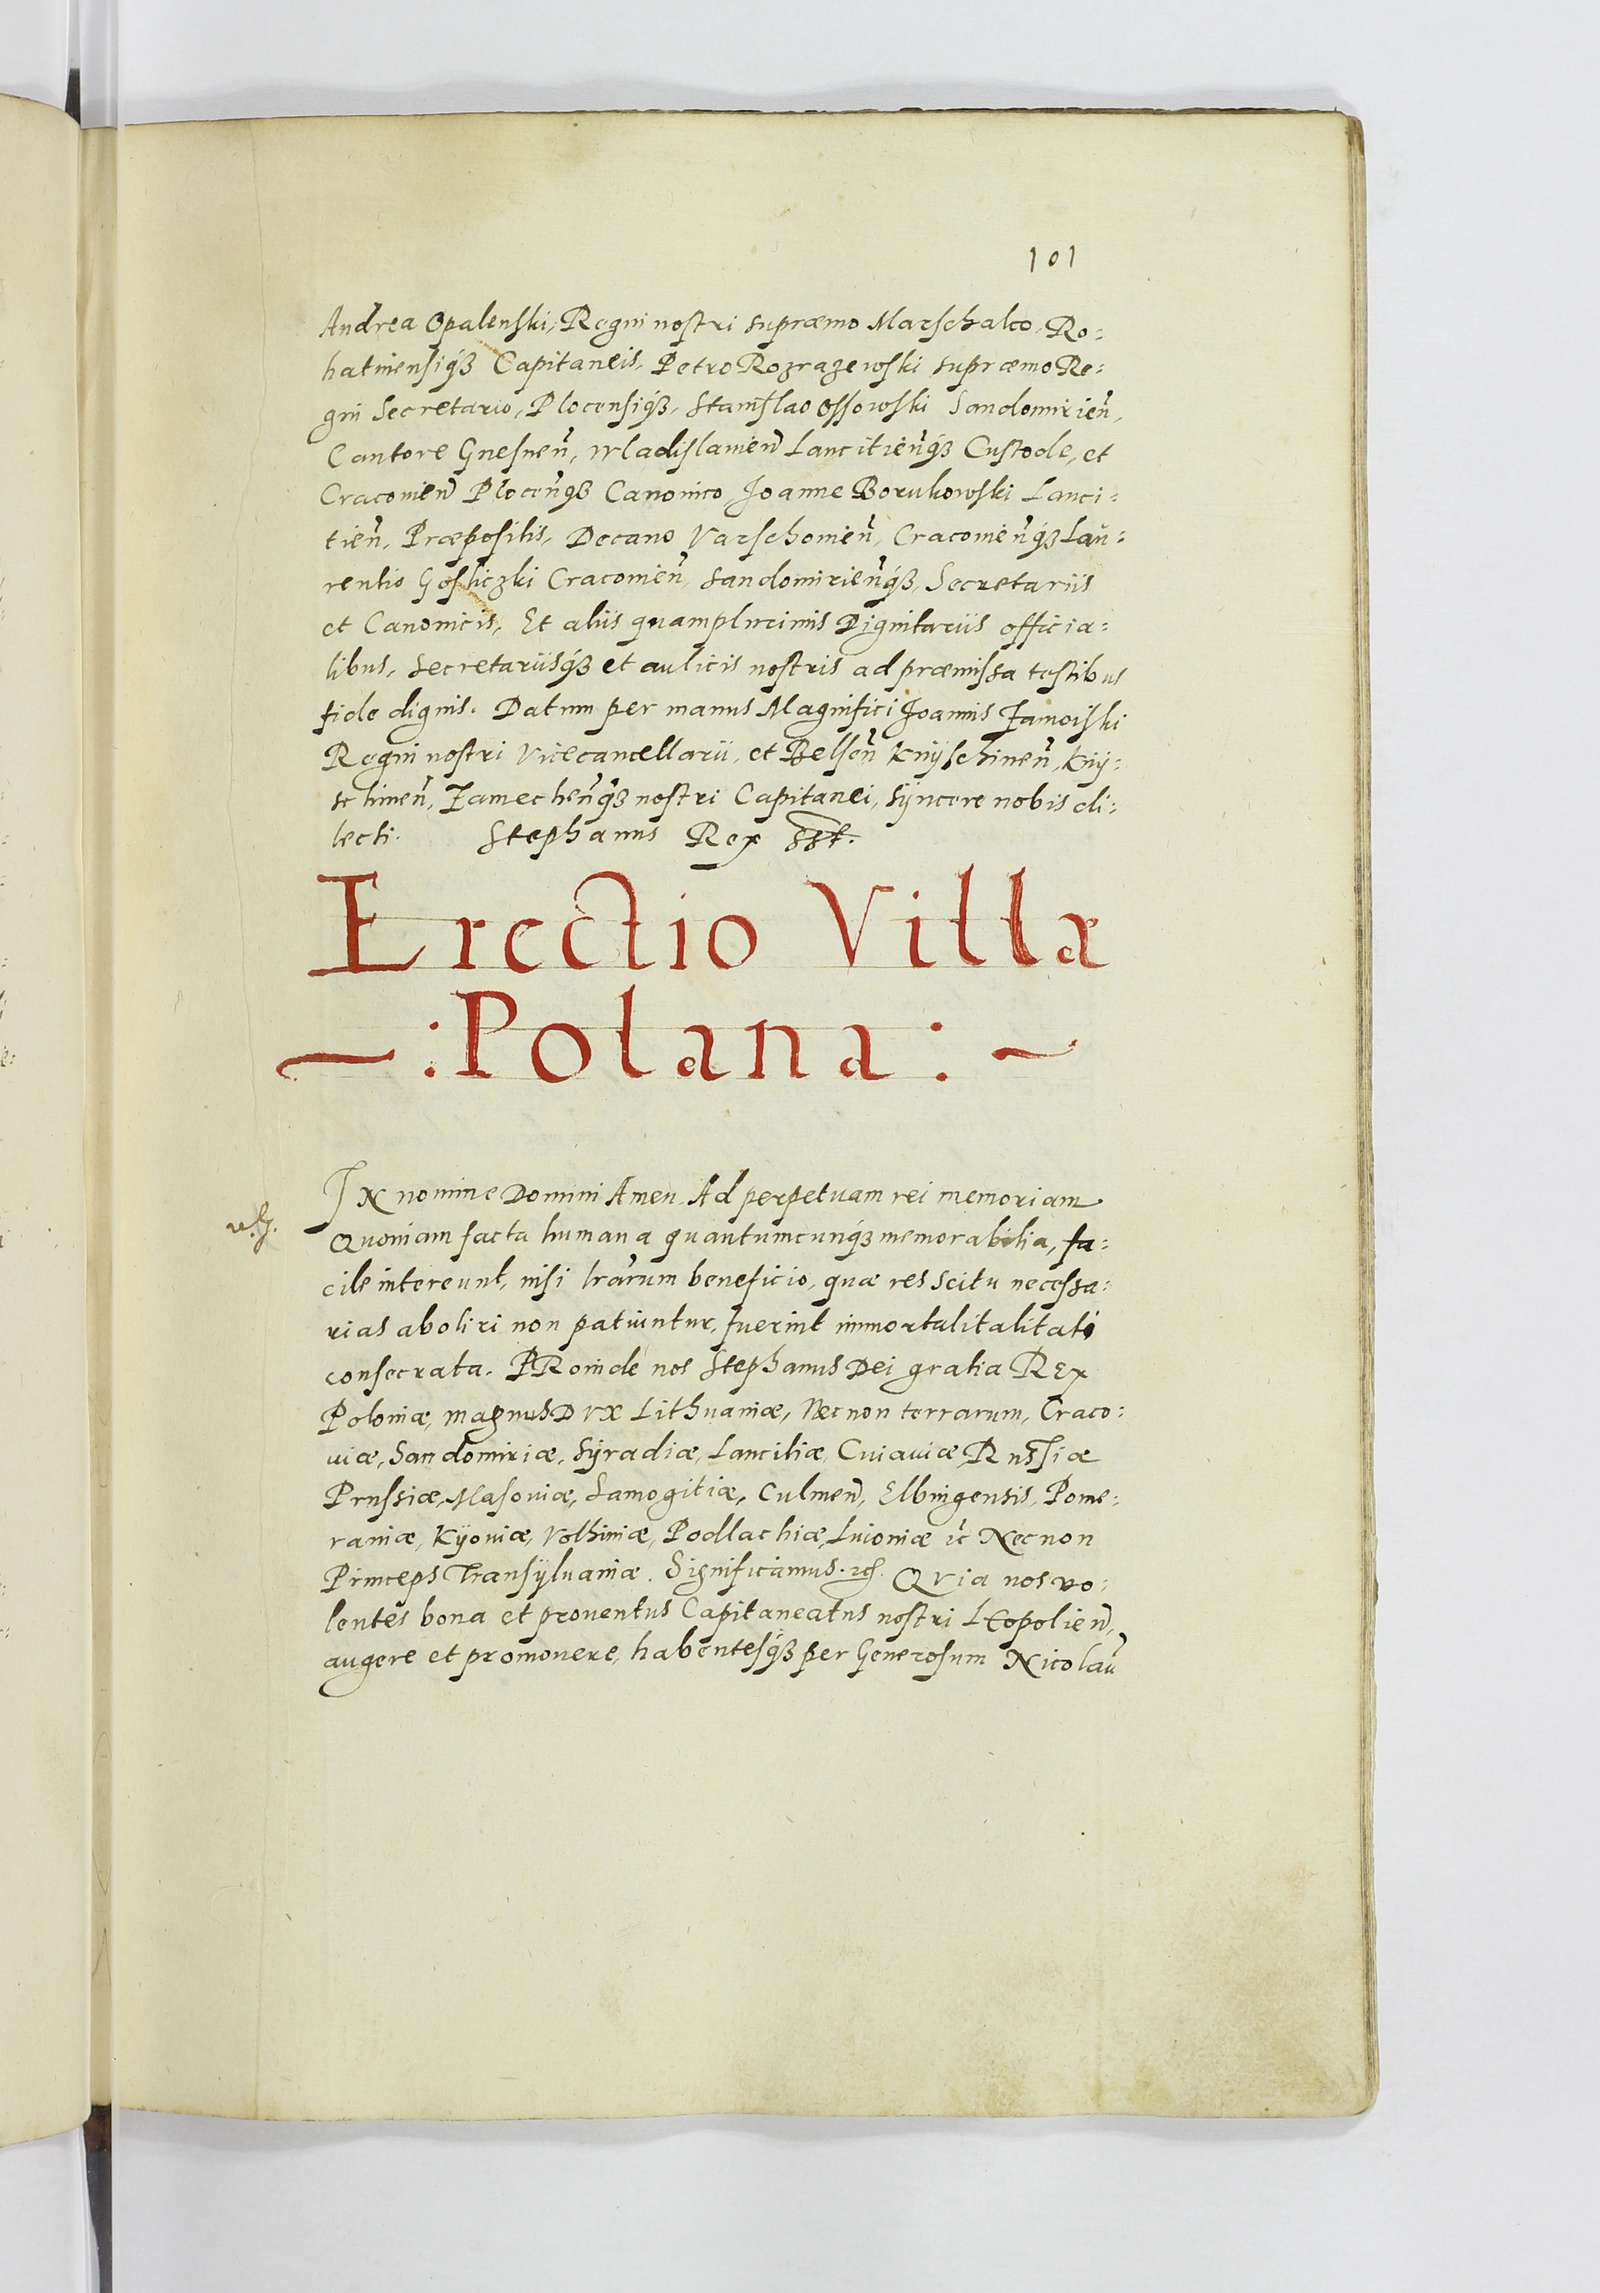 101
Andrea Opalenski, Regni nostri supræmo Marschalco, Ro:
hatinensiq́ꝫ Capitaneis, Petro Rozrazewski supræmo Re:
gni Secretario, Plocensiq́ꝫ, Stanislao Ossowski Sandomirien̄,
Cantore Gnesnen̄, Wladislauien̄ Lancitien̄q́ꝫ Custode, et
Cracouien̄ Plocen̄qꝫ Canonico, Joanne Borukowski Lanci:
tien̄, Præpositis, Decano Varschouien̄, Cracouien̄q́ꝫ Lau:
rentio Gosliczki Cracouien̄, Sandomirien̄q́ꝫ, Secretariis
et Canonicis, Et aliis quamplurimis Dignitariis officia:
libus, Secretariisq́ꝫ et aulicis nostris ad præmissa testibus
fide dignis. Datum per manus Magnifici Joannis Zamoiski
Regni nostri Vicecancellarii, et Belsen̄ Knÿschinen̄, Knÿ:
schinen̄, Zamechen̄q́ꝫ nostri Capitanei, sÿncere nobis di:
lecti. Stephanus Rex sst.
Erectio Villæ
~ :Polana: ~
IN nomine Domini Amen. Ad perpetuam rei memoriam
Quoniam facta humana quantumcunq́ꝫ memorabilia, fa:
cile intereunt, nisi lrārum beneficio, quæ res scitu necessa:
rias aboliri non patiuntur, fuerint immortalitalitati
consecrata. PRoinde nos Stephanus Dei gratia REx
Poloniæ, magnus DVX Lithuaniæ, Necnon terrarum, Craco:
uiæ, Sandomiriæ, Sÿradiæ, Lancitiæ, Cuiauiæ, Russiæ
Prussiæ, Masouiæ, Samogitiæ, Culmen̄, Elbingensis, Pome:
raniæ, Kÿouiæ, Volhiniæ, Podlachiæ, Liuoniæ ꝛc̄ Necnon
Princeps Transÿluaniæ. Significamus. ꝛc̄. QVia nos vo:
lentes bona et prouentus Capitaneatus nostri LEopolien̄,
augere et promouere, habentesq́ꝫ per Generosum Nicolaū